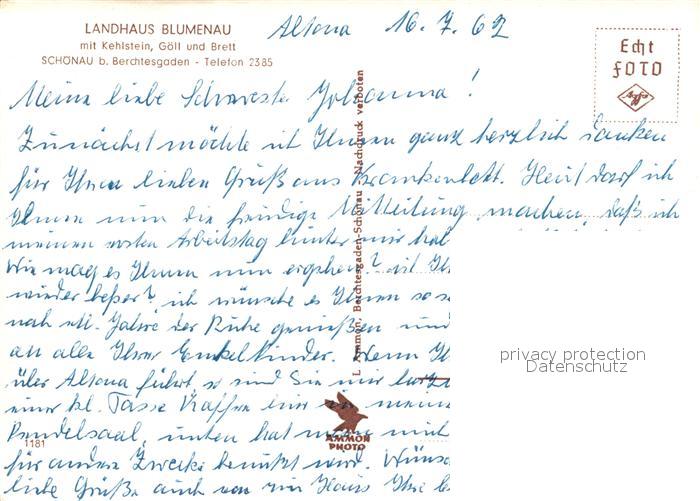 LANDHAUS BLUMENAU
mit Kehlstein, Göll und Brett
SCHÖNAU b. Berchtesgaden - Telefon 2385
Altona 16. 7. 62
Echt
FOTO
Agfa
Meine liebe Schwester Johanna!
Zunächst möchte ich Ihnen ganz herzlich danken
für Ihren lieben Gruß aus Krankenbett. Heut darf ich
Ihnen nun die freudige Mitteilung machen, daß ich
meinen ersten Arbeitstag hinter mir hab
Wie mag es Ihnen nun ergehen? ist Ih
wieder beßer? ich wünsche es Ihnen so s
noch Jahre der Ruhe genießen und
an allen Ihren Enkelkinder. Wenn Ih
über Altona führt, so sind Sie mir herz
einer kl. Tasse Kaffee hier in meine
Pendelsaal, unten hat man mich
für andere Zwecke benutzt wird. Wüns
liebe Grüße auch von Haus Ihre b
L. Ammon, Berchtesgaden-Schönau - Nachdruck verboten
AMMON
PHOTO
1181
privacy protection
Datenschutz